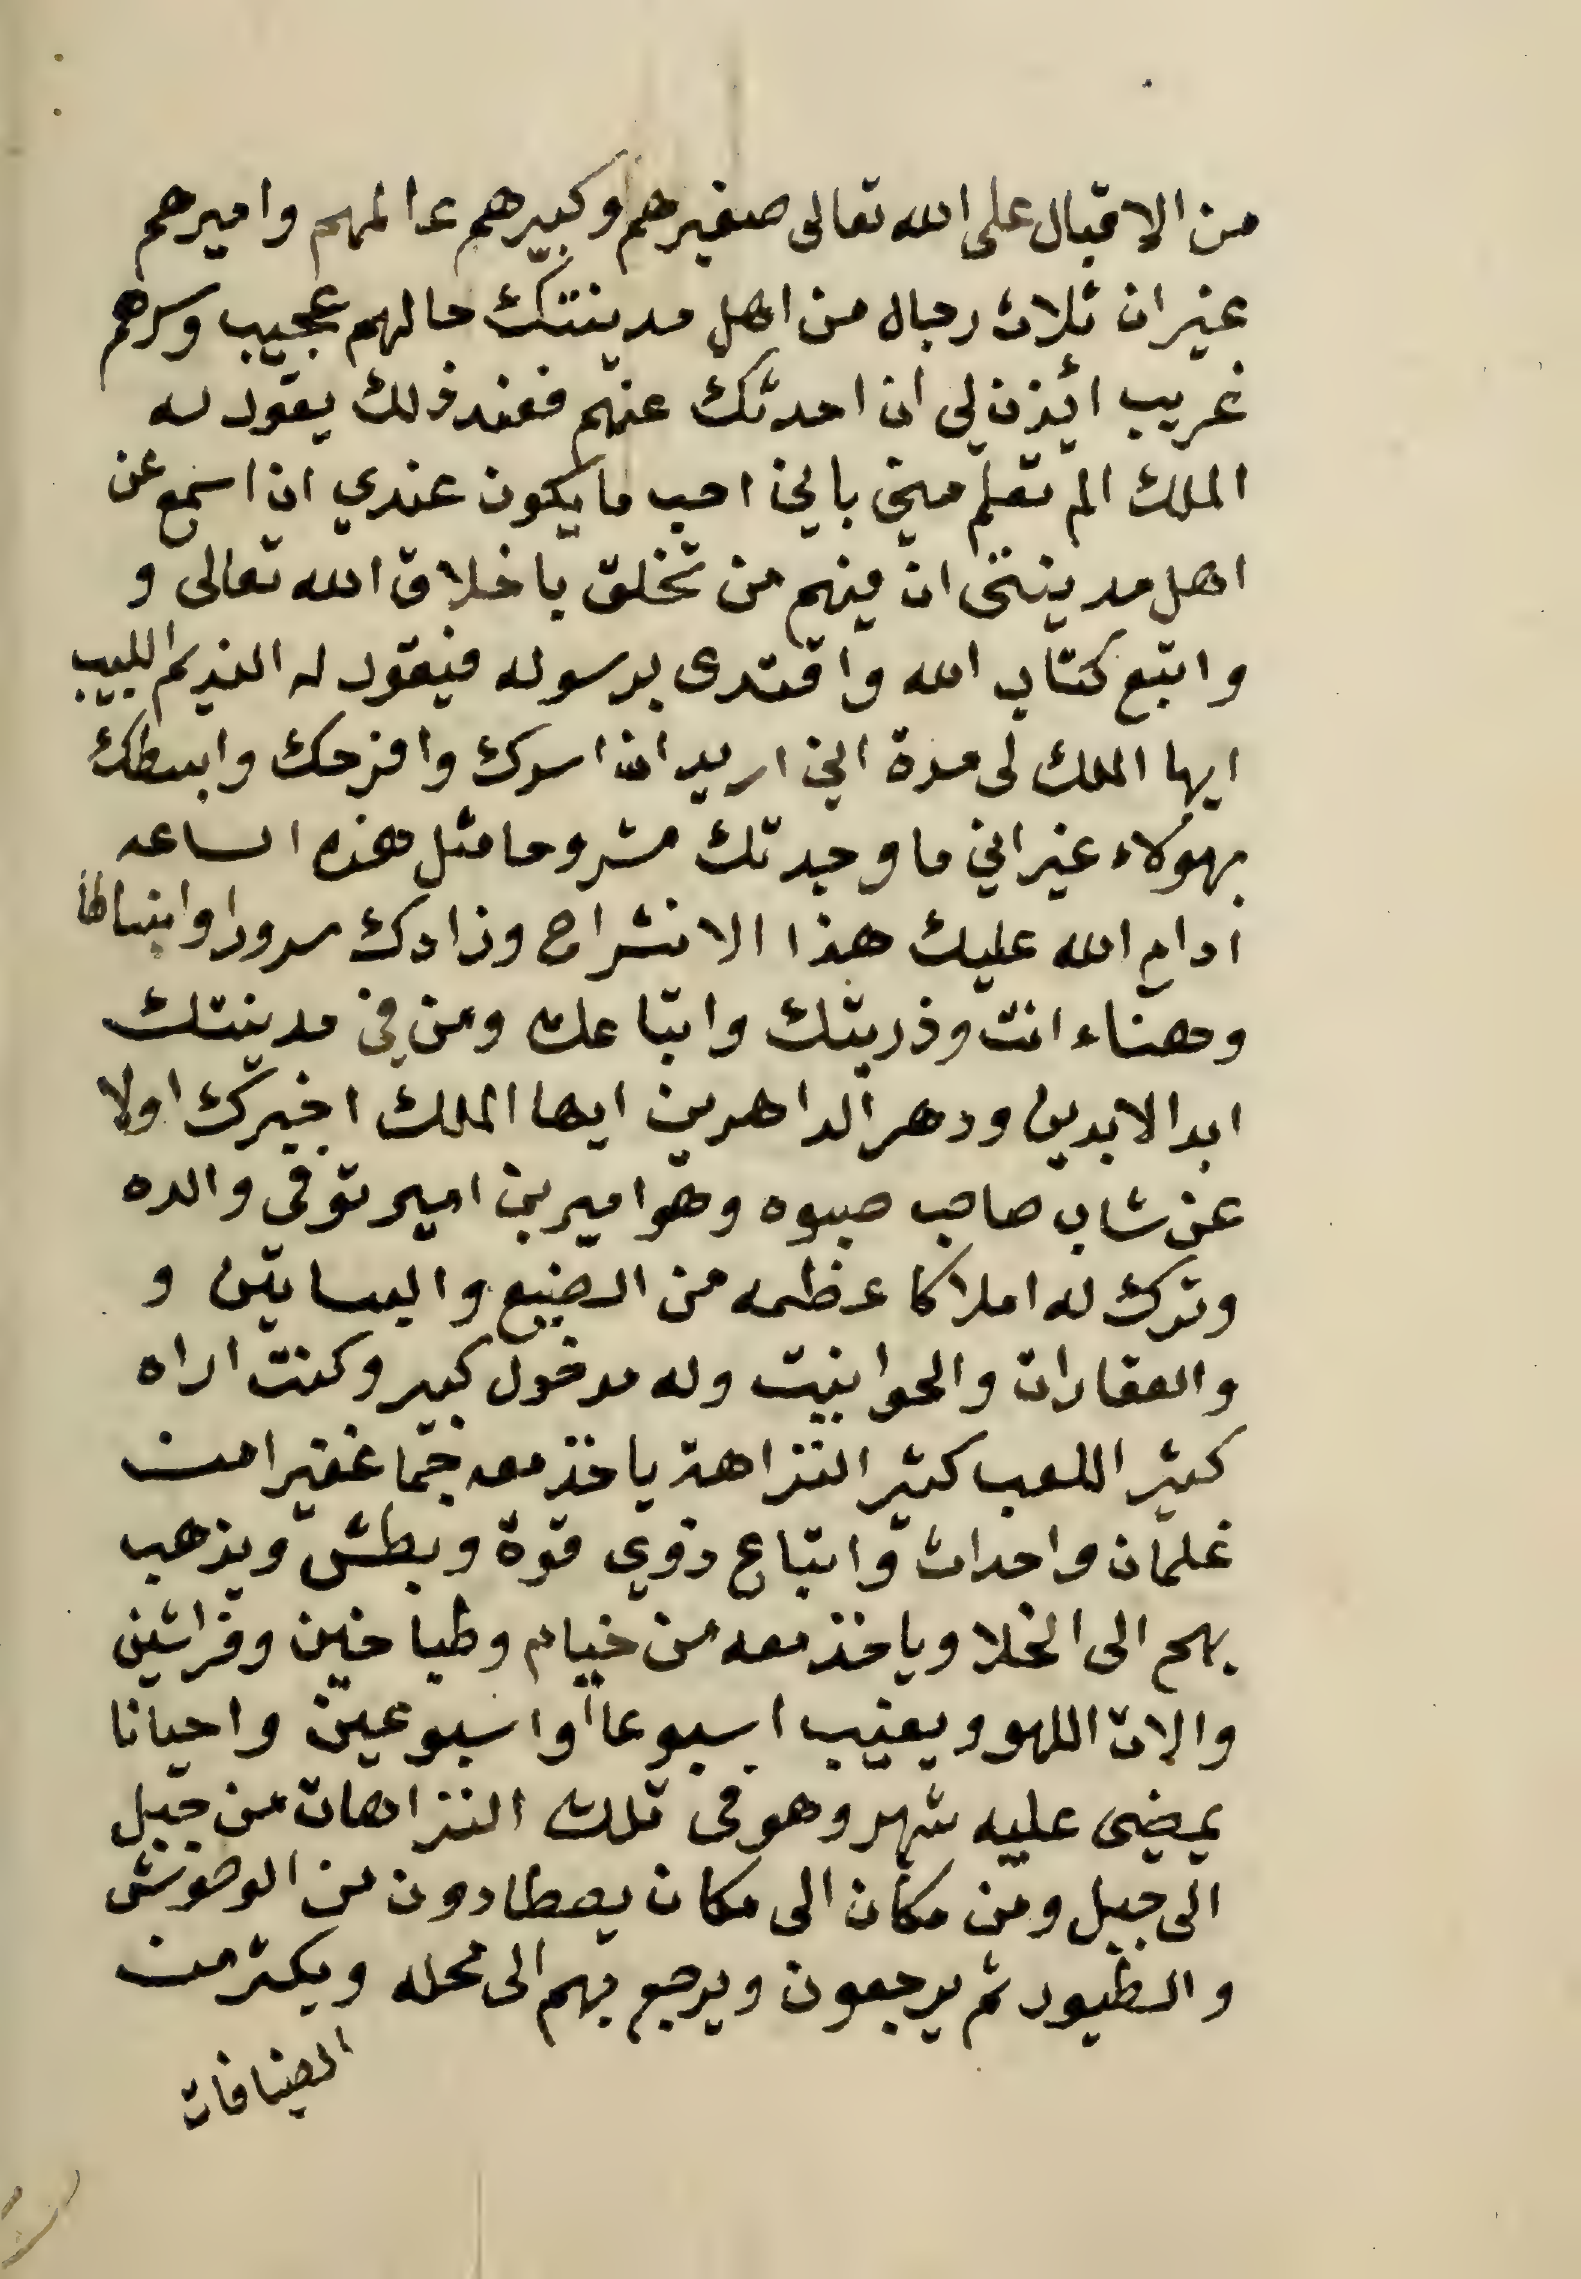 من الاقبال على الله تعالى صغيرهم وكبيرهم عالمهم واميرهم
غير ان ثلاث رجال من اهل مدينتك حالهم عجيب وسرهم
غريب ائيذن لي ان احدثك عنهم فعند ذلك يقول له
الملك الم تعلم مني باني احب ما يكون عندي ان اسمع عن
اهل مدينتى ان فيهم من تخلق باخلاق الله تعالى و
واتبع كتاب الله واقتدى برسوله فيقول له النديم اللبيب
ايها الملك لى مدة اني اريد ان اسرك وافرحك وابسطك
بهولاء غير اني ما وجدتك مشروحا مثل هذه الساعه
ادام الله عليك هذا الانشراح وزادك سرورا وانبساطا
وهناء انت وذريتك واتباعك ومن في مدينتك
ابد الابدين ودهر الداهرين ايها الملك اخبرك اولا
عن شاب صاحب صبوه وهو امير بن امير توفى والده
وترك له املاكا عظيمه من الضيع والبساتين و
والعقارات والحوانيت وله مدخول كبير وكنت اراه
كثير اللعب كثير النزاهة ياخذ معه جما غفيرا من
غلمان واحداث واتباع ذوي قوة وبطش ويذهب
بهم الى الخلا وياخذ معه من خيام وطباخين وفراشين
والات اللهو ويغيب اسبوعا او اسبوعين واحيانا
يمضى عليه شهر وهو فى تلك النزاهات من جبل
الى جبل ومن مكان الى مكان يصطادون من الوحوش
والطيور ثم يرجعون ويرجع بهم الى محله ويكثر من
الضيافات